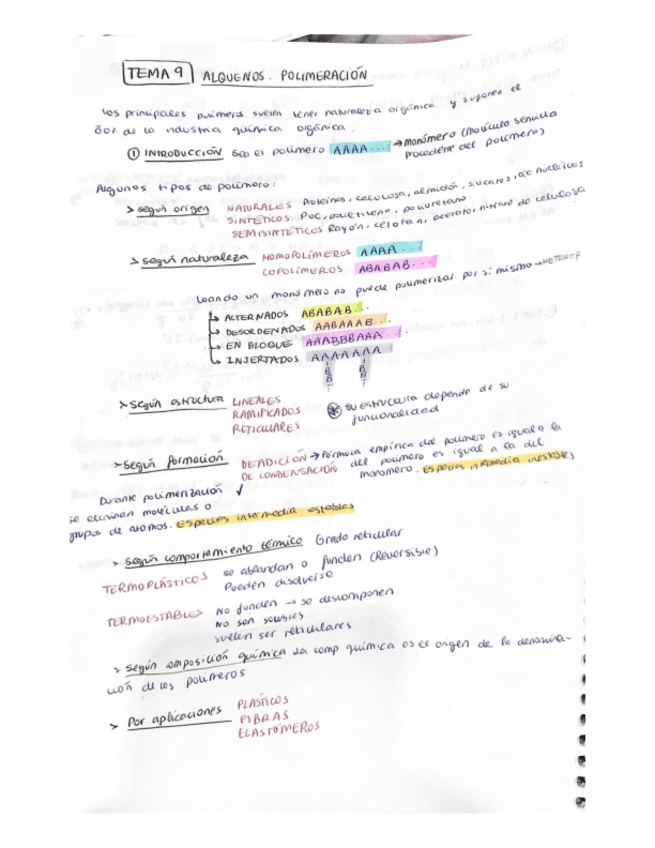 TEMA 9 ALQUENOS. POLIMERACIÓN
Los principales polímeros suelen tener naturaleza orgánica y suponen el
80% de la industria química orgánica.
① INTRODUCCIÓN Sea el polímero AAAA... → monómero (molécula sencilla
procedente del polímero)
Algunos tipos de polímero:
> según origen NATURALES Proteínas, celulosa, almidón, sucaros, ác nucleicos
SINTÉTICOS PVC, polietileno, poliuretano
SEMISINTETICOS Rayón, celofan, acetato, nitrato de celulosa
> según naturaleza HOMOPOLÍMEROS AAAA...
COPOLÍMEROS ABABAB...
Cuando un monómero no puede polimerizar por sí mismo → HETEROP
→ ALTERNADOS ABABAB...
→ DESORDENADOS AABAAAB...
→ EN BLOQUE AAABBBAAA...
→ INJERTADOS AAAAAAA
B B
B B
> Según estructura LINEALES
RAMIFICADOS
RETICULARES
su estructura depende de su
funcionalidad
> Según formación DE ADICIÓN → Fórmula empírica del polímero es igual a la
DE CONDENSACIÓN del polímero es igual a la del
monómero. Especies intermedia inestables
Durante polimerización
se eliminan moléculas o
grupos de átomos. Especies intermedia estables
> según comportamiento térmico Grado reticular
TERMOPLÁSTICOS se ablandan o funden (Reversible)
Pueden disolverse
TERMOESTABLES No funden → se descomponen
No son solubles
suelen ser reticulares
> según composición química La comp química es el origen de la denomina-
ción de los polímeros
> Por aplicaciones PLASTICOS
FIBRAS
ELASTÓMEROS